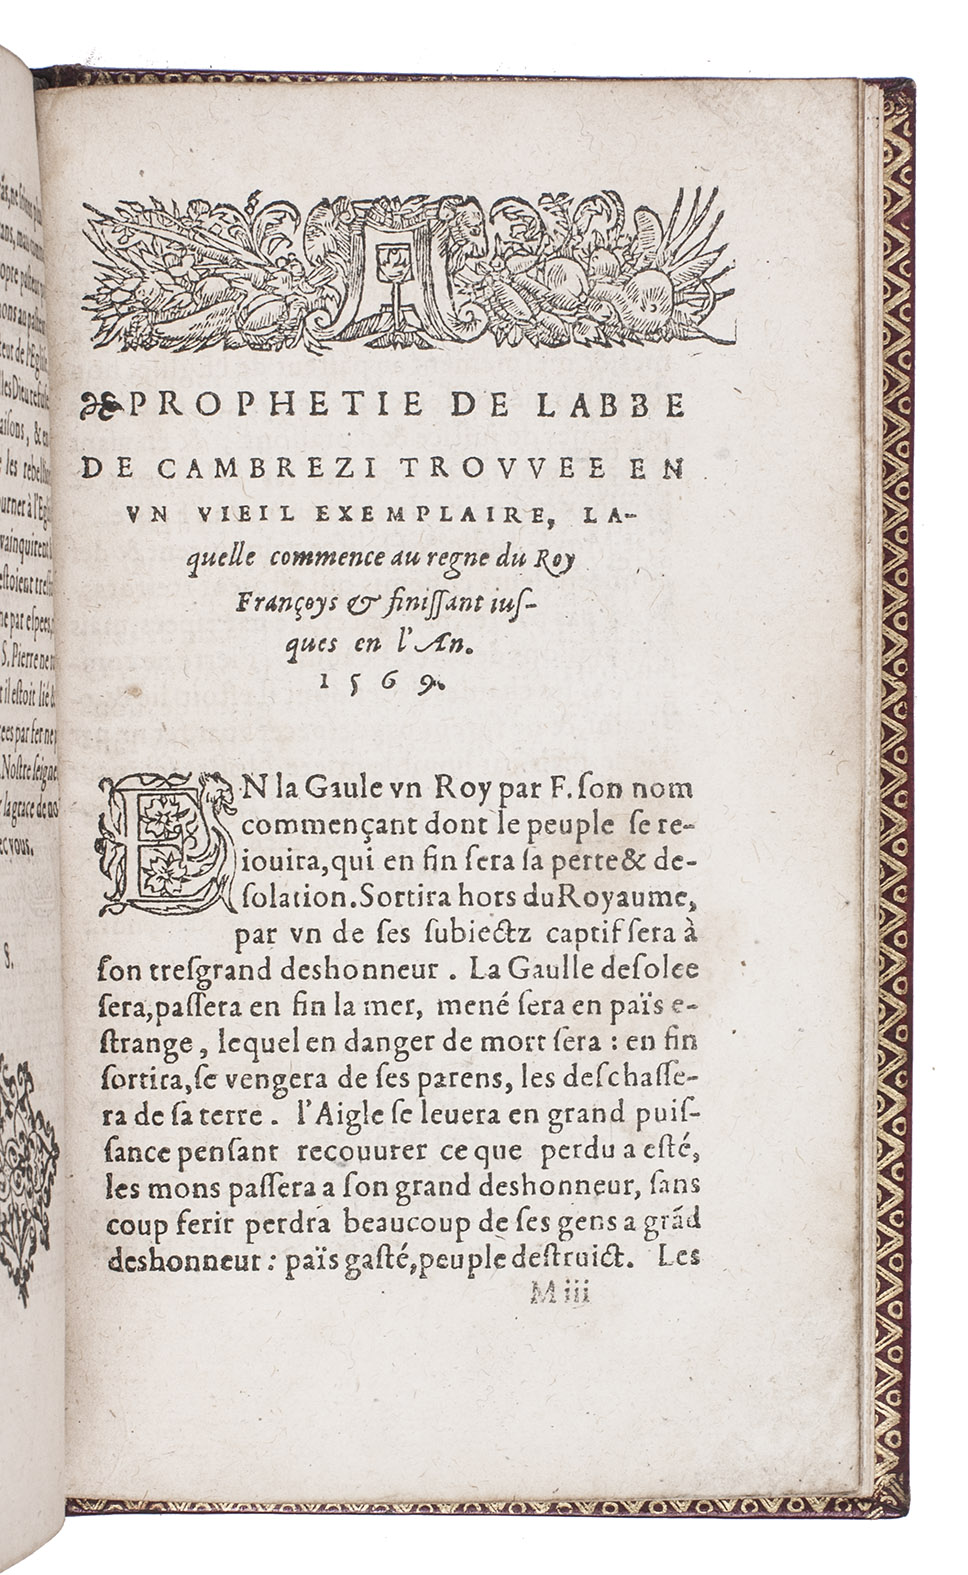 PROPHETIE DE LABBE
DE CAMBREZI TROVVEE EN
VN VIEIL EXEMPLAIRE, LA-
quelle commence au regne du Roy
Françoys & finiſſant iuſ-
ques en l'An.
1569.
EN la Gaule vn Roy par F. ſon nom
commençant dont le peuple ſe re-
iouira, qui en fin ſera ſa perte & de-
ſolation. Sortira hors du Royaume,
par vn de ſes ſubiectz captif ſera à
ſon treſgrand deshonneur. La Gaulle deſolee
ſera, paſſera en fin la mer, mené ſera en païs e-
ſtrange, lequel en danger de mort ſera : en fin
ſortira, ſe vengera de ſes parens, les deſchaſſe-
ra de ſa terre. l'Aigle ſe leuera en grand puiſ-
ſance penſant recouurer ce que perdu a eſté,
les mons paſſera a ſon grand deshonneur, ſans
coup ferir perdra beaucoup de ſes gens a grãd
deshonneur : païs gaſté, peuple deſtruict. Les
M iii
les Dieu
les rebel
S. Pierre ne
til eſtoit lié
ees par fer ne
Noſtre ſeigne
la grace de no
ec vous.
S.